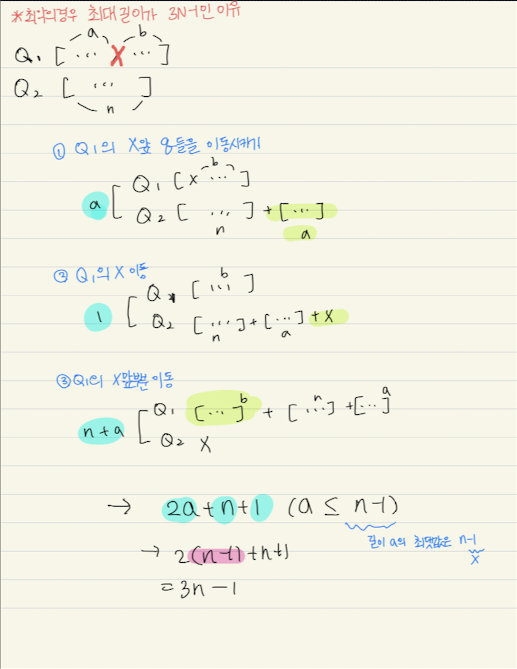 *최악의경우 최대길이가 3N-1인 이유
a b
Q₁ [ ... X ... ]
Q₂ [ ... ]
n
① Q₁의 X앞 요들을 이동시키기
b
a [ Q₁ [ X ... ]
Q₂ [ ... ] + [ ... ]
n a
② Q₁의 X 이동
b
1 [ Q₁ [ ... ]
Q₂ [ ... ] + [ ... ] + X
n a
③ Q₁의 X앞뿐 이동
n+a [ Q₁ [ ... ]ᵇ + [ ...ⁿ ] + [ ... ]ᵃ
Q₂ X
→ 2a+n+1 (a ≤ n-1)
길이 a의 최댓값은 n-1
X
→ 2(n-1)+n+1
= 3n-1